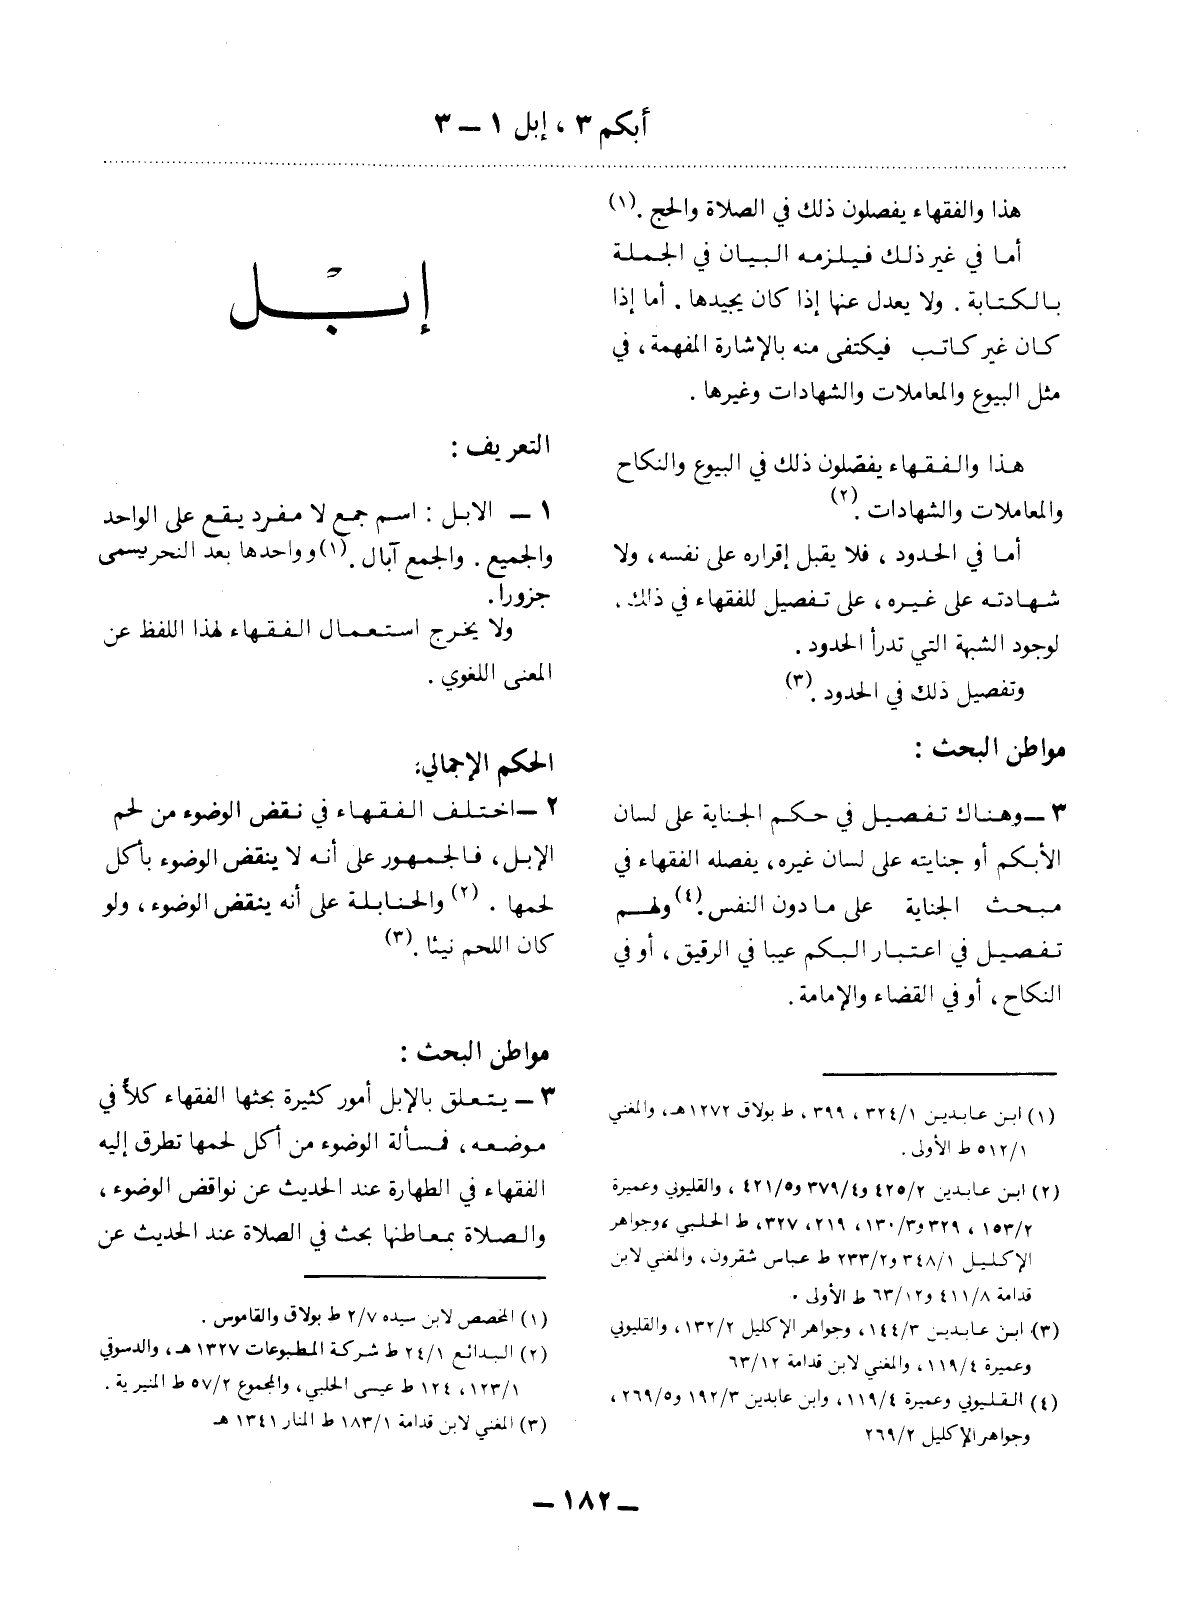 أبكم ٣ ، إبل ١ ــ ٣
هذا والفقهاء يفصلون ذلك في الصلاة والحج .(١)
أما في غير ذلك فيلزمه البيان في الجملة
بالكتابة . ولا يعدل عنها إذا كان يجيدها . أما إذا
كان غير كاتب فيكتفى منه بالإشارة المفهمة ، في
مثل البيوع والمعاملات والشهادات وغيرها .
هذا والفقهاء يفصّلون ذلك في البيوع والنكاح
والمعاملات والشهادات .(٢)
أما في الحدود ، فلا يقبل إقراره على نفسه ، ولا
شهادته على غيره ، على تفصيل للفقهاء في ذلك ،
لوجود الشبهة التي تدرأ الحدود .
وتفصيل ذلك في الحدود .(٣)
مواطن البحث :
٣ ــ وهناك تفصيل في حكم الجناية على لسان
الأبكم أو جنايته على لسان غيره ، يفصله الفقهاء في
مبحث الجناية على مادون النفس .(٤) ولهم
تفصيل في اعتبار البكم عيبا في الرقيق ، أو في
النكاح ، أو في القضاء والإمامة .
(١) ابن عابدين ١/ ٣٢٤ ، ٣٩٩ ، ط بولاق ١٢٧٢ هـ ، والمغني
١/ ٥١٢ ط الأولى .
(٢) ابن عابدين ٢/ ٤٢٥ و٤/ ٣٧٩ و٥/ ٤٢١ ، والقليوبي وعميرة
٢/ ١٥٣ ، ٣٢٩ و٣/ ١٣٠ ، ٢١٩ ، ٣٢٧ ، ط الحلبي ، وجواهر
الإكليل ١/ ٣٤٨ و٢/ ٢٣٣ ط عباس شقرون ، والمغني لابن
قدامة ٨/ ٤١١ و١٢/ ٦٣ ط الأولى .
(٣) ابن عابدين ٣/ ١٤٤ ، وجواهر الإكليل ٢/ ١٣٢ ، والقليوبي
وعميرة ٤/ ١١٩ ، والمغني لابن قدامة ١٢/ ٦٣
(٤) القليوبي وعميرة ٤/ ١١٩ ، وابن عابدين ٣/ ١٩٢ و٥/ ٢٦٩ ،
وجواهر الإكليل ٢/ ٢٦٩
إبْل
التعريف :
١ ــ الابل : اسم جمع لا مفرد يقع على الواحد
والجميع . والجمع آبال .(١) وواحدها بعد النحر يسمى
جزورا .
ولا يخرج استعمال الفقهاء لهذا اللفظ عن
المعنى اللغوي .
الحكم الإجمالي :
٢ ــ اختلف الفقهاء في نقض الوضوء من لحم
الإبل ، فالجمهور على أنه لا ينقض الوضوء بأكل
لحمها . (٢) والحنابلة على أنه ينقض الوضوء ، ولو
كان اللحم نيئا .(٣)
مواطن البحث :
٣ ــ يتعلق بالإبل أمور كثيرة بحثها الفقهاء كلاًّ في
موضعه ، فمسألة الوضوء من أكل لحمها تطرق إليه
الفقهاء في الطهارة عند الحديث عن نواقض الوضوء ،
والصلاة بمعاطنها بحث في الصلاة عند الحديث عن
(١) المخصص لابن سيده ٧/ ٢ ط بولاق والقاموس .
(٢) البدائع ١/ ٢٤ ط شركة المطبوعات ١٣٢٧ هـ ، والدسوقي
١/ ١٢٣ ، ١٢٤ ط عيسى الحلبي ، والمجموع ٢/ ٥٧ ط المنيرية .
(٣) المغني لابن قدامة ١/ ١٨٣ ط المنار ١٣٤١ هـ
ــ ١٨٢ ــ